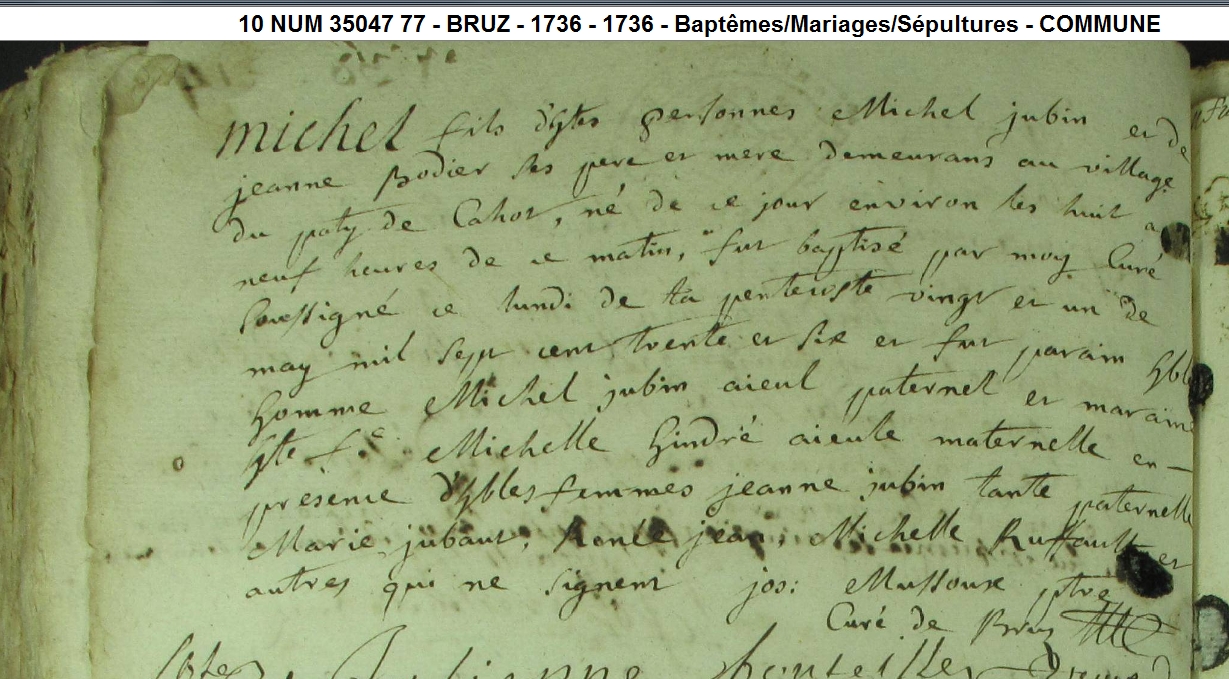 10 NUM 35047 77 - BRUZ - 1736 - 1736 - Baptêmes/Mariages/Sépultures - COMMUNE
Michel fils d'hstes personnes Michel jubin et de
jeanne Bodier ses pere et mere demeurans au village
du paty de Cahot, né de ce jour environ les huit a
neuf heures de ce matin, fut baptisé par moy Curé
soussigné ce lundi de la pentecoste vingt et un de
may mil sept cent trente et six et fut parain hble
homme Michel jubin aieul paternel et maraine
hste fe Michelle hindré aieule maternelle en
presence d'hbles femmes jeanne jubin tante paternelle
Marie jubaut, Renée jean, Michelle Ruffault et
autres qui ne signent jos: Mussoux ptre
Curé de Bruz